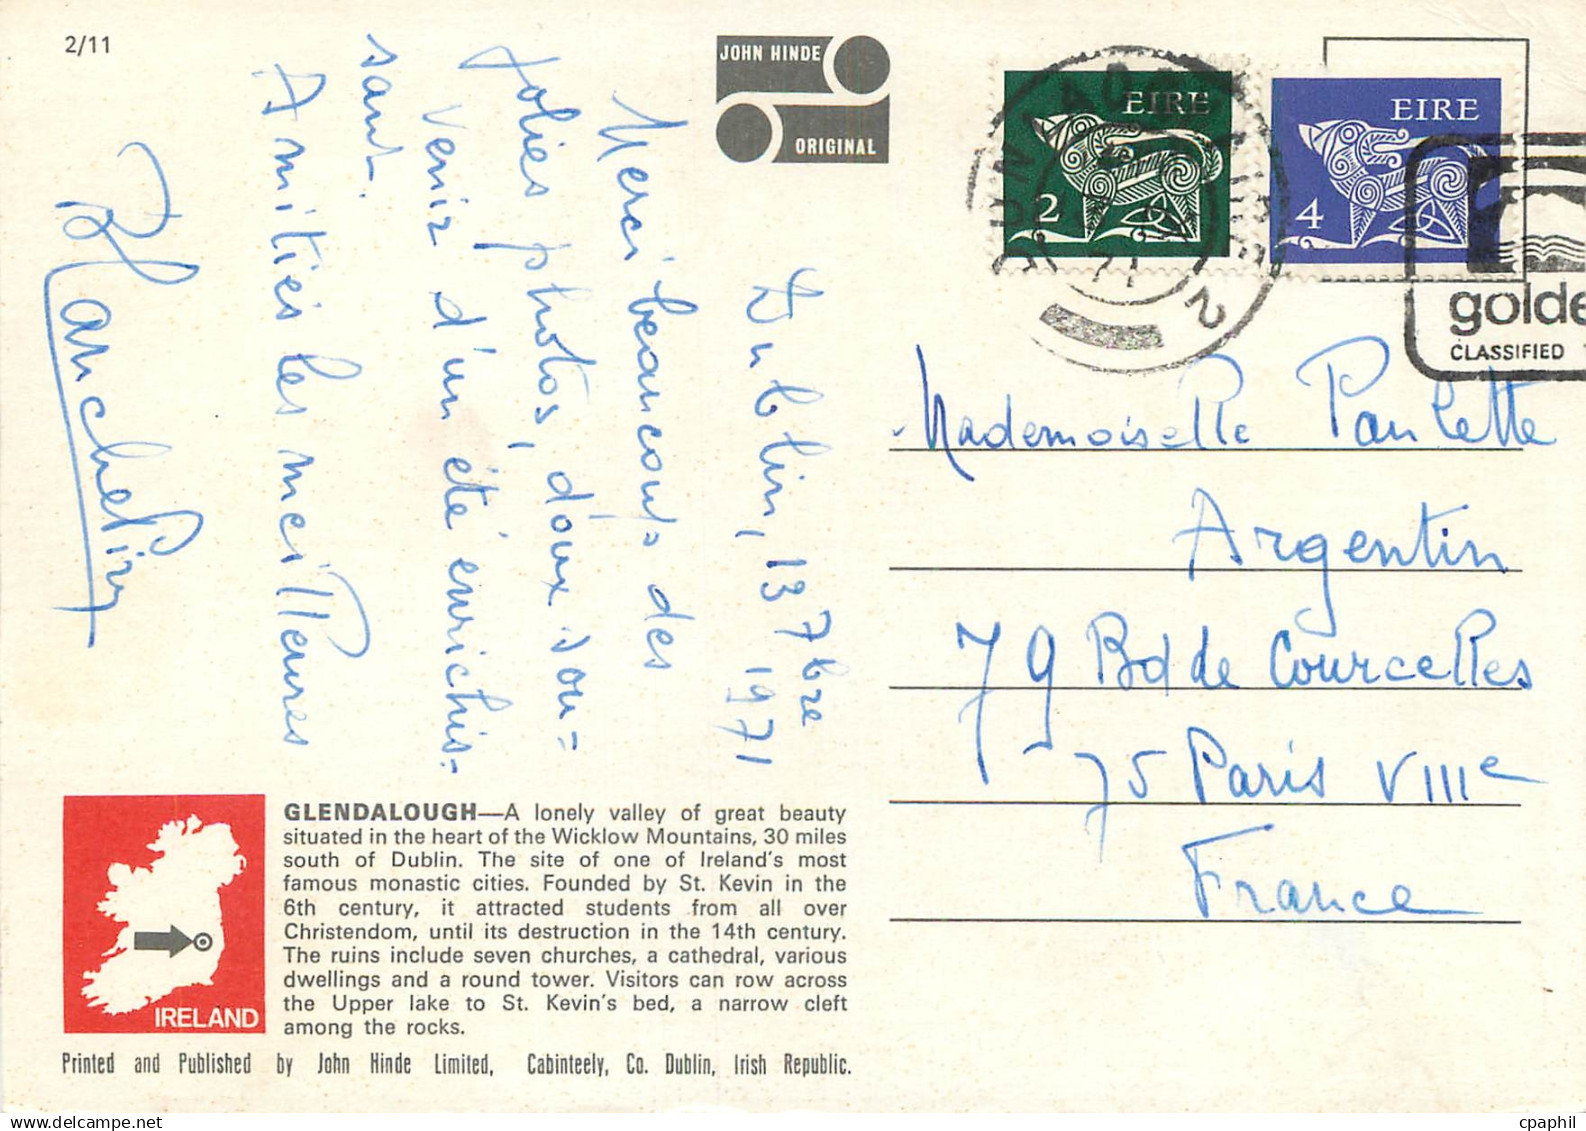 2/11
JOHN HINDE
ORIGINAL
EIRE
2
EIRE
4
71
2
golde
CLASSIFIED
Dublin, 13 7bre
1971
Merci beaucoup des
jolies photos, doux sou=
venir d'un été enrichis-
sant.
Amitiés les meilleures
Blanchelin
Mademoiselle Paulette
Argentin
79 Bd de Courcelles
75 Paris VIIIe
France
GLENDALOUGH—A lonely valley of great beauty
situated in the heart of the Wicklow Mountains, 30 miles
south of Dublin. The site of one of Ireland's most
famous monastic cities. Founded by St. Kevin in the
6th century, it attracted students from all over
Christendom, until its destruction in the 14th century.
The ruins include seven churches, a cathedral, various
dwellings and a round tower. Visitors can row across
the Upper lake to St. Kevin's bed, a narrow cleft
among the rocks.
IRELAND
Printed and Published by John Hinde Limited, Cabinteely, Co. Dublin, Irish Republic.
cpaphil